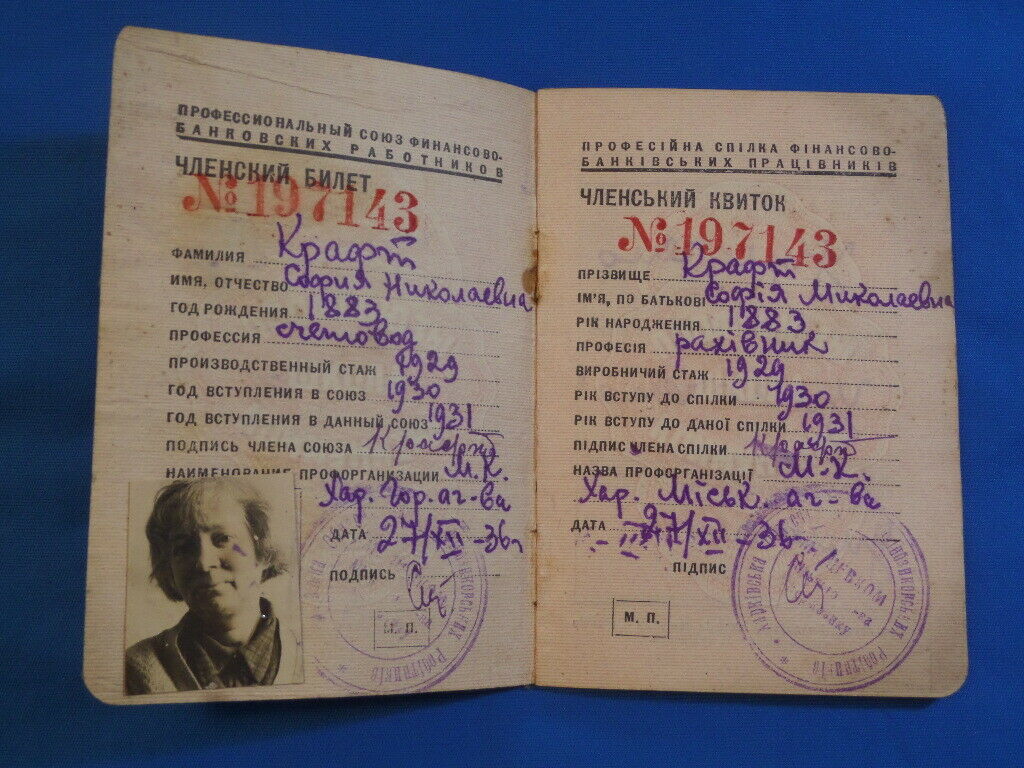 ПРОФЕССИОНАЛЬНЫЙ СОЮЗ ФИНАНСОВО-
БАНКОВСКИХ РАБОТНИКОВ
ЧЛЕНСКИЙ БИЛЕТ
№ 197143
ФАМИЛИЯ Крафт
ИМЯ, ОТЧЕСТВО София Николаевна
ГОД РОЖДЕНИЯ 1883
ПРОФЕССИЯ счетовод
ПРОИЗВОДСТВЕННЫЙ СТАЖ 1929
ГОД ВСТУПЛЕНИЯ В СОЮЗ 1930
ГОД ВСТУПЛЕНИЯ В ДАННЫЙ СОЮЗ 1931
ПОДПИСЬ ЧЛЕНА СОЮЗА Крафт
НАИМЕНОВАНИЕ ПРОФОРГАНИЗАЦИИ М.К.
Хар. Гор. аг-ва
ДАТА 27/XII-36
ПОДПИСЬ
М. П.
ПРОФЕСІЙНА СПІЛКА ФІНАНСОВО-
БАНКІВСЬКИХ ПРАЦІВНИКІВ
ЧЛЕНСЬКИЙ КВИТОК
№ 197143
ПРІЗВИЩЕ Крафт
ІМ'Я, ПО БАТЬКОВІ Софія Миколаевна
РІК НАРОДЖЕННЯ 1883
ПРОФЕСІЯ рахівник
ВИРОБНИЧИЙ СТАЖ 1929
РІК ВСТУПУ ДО СПІЛКИ 1930
РІК ВСТУПУ ДО ДАНОЇ СПІЛКИ 1931
ПІДПИС ЧЛЕНА СПІЛКИ Крафт
НАЗВА ПРОФОРГАНІЗАЦІЇ М.К.
Хар. Міськ. аг-ва
ДАТА 27/XII-36
ПІДПИС
М. П.